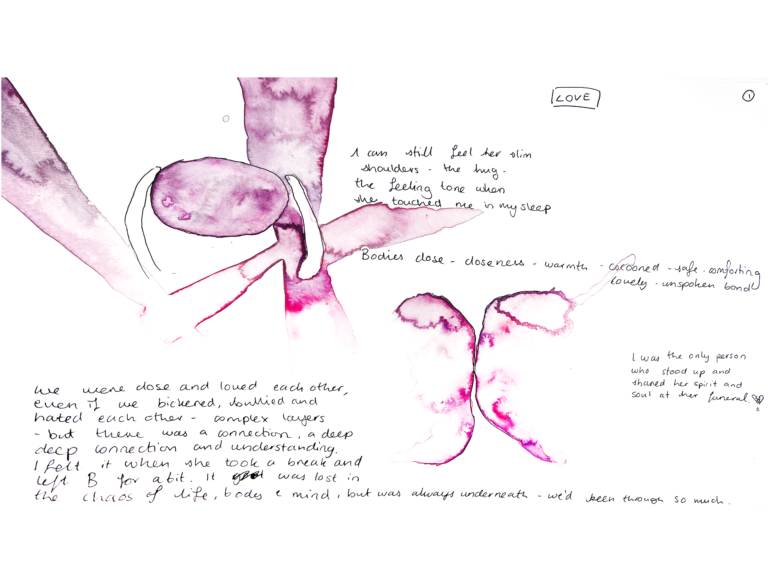 LOVE
1
I can still feel her slim
shoulders - the hug -
the feeling tone when
she touched me in my sleep
Bodies close - closeness - warmth - cocooned - safe - comforting
lovely - unspoken bond
I was the only person
who stood up and
shared her spirit and
soul at her funeral.
we were close and loved each other,
even if we bickered, bullied and
hated each other - complex layers
- but there was a connection, a deep
deep connection and understanding.
I felt it when she took a break and
left B for a bit. It was lost in
the chaos of life, bodies & mind, but was always underneath - we'd been through so much.